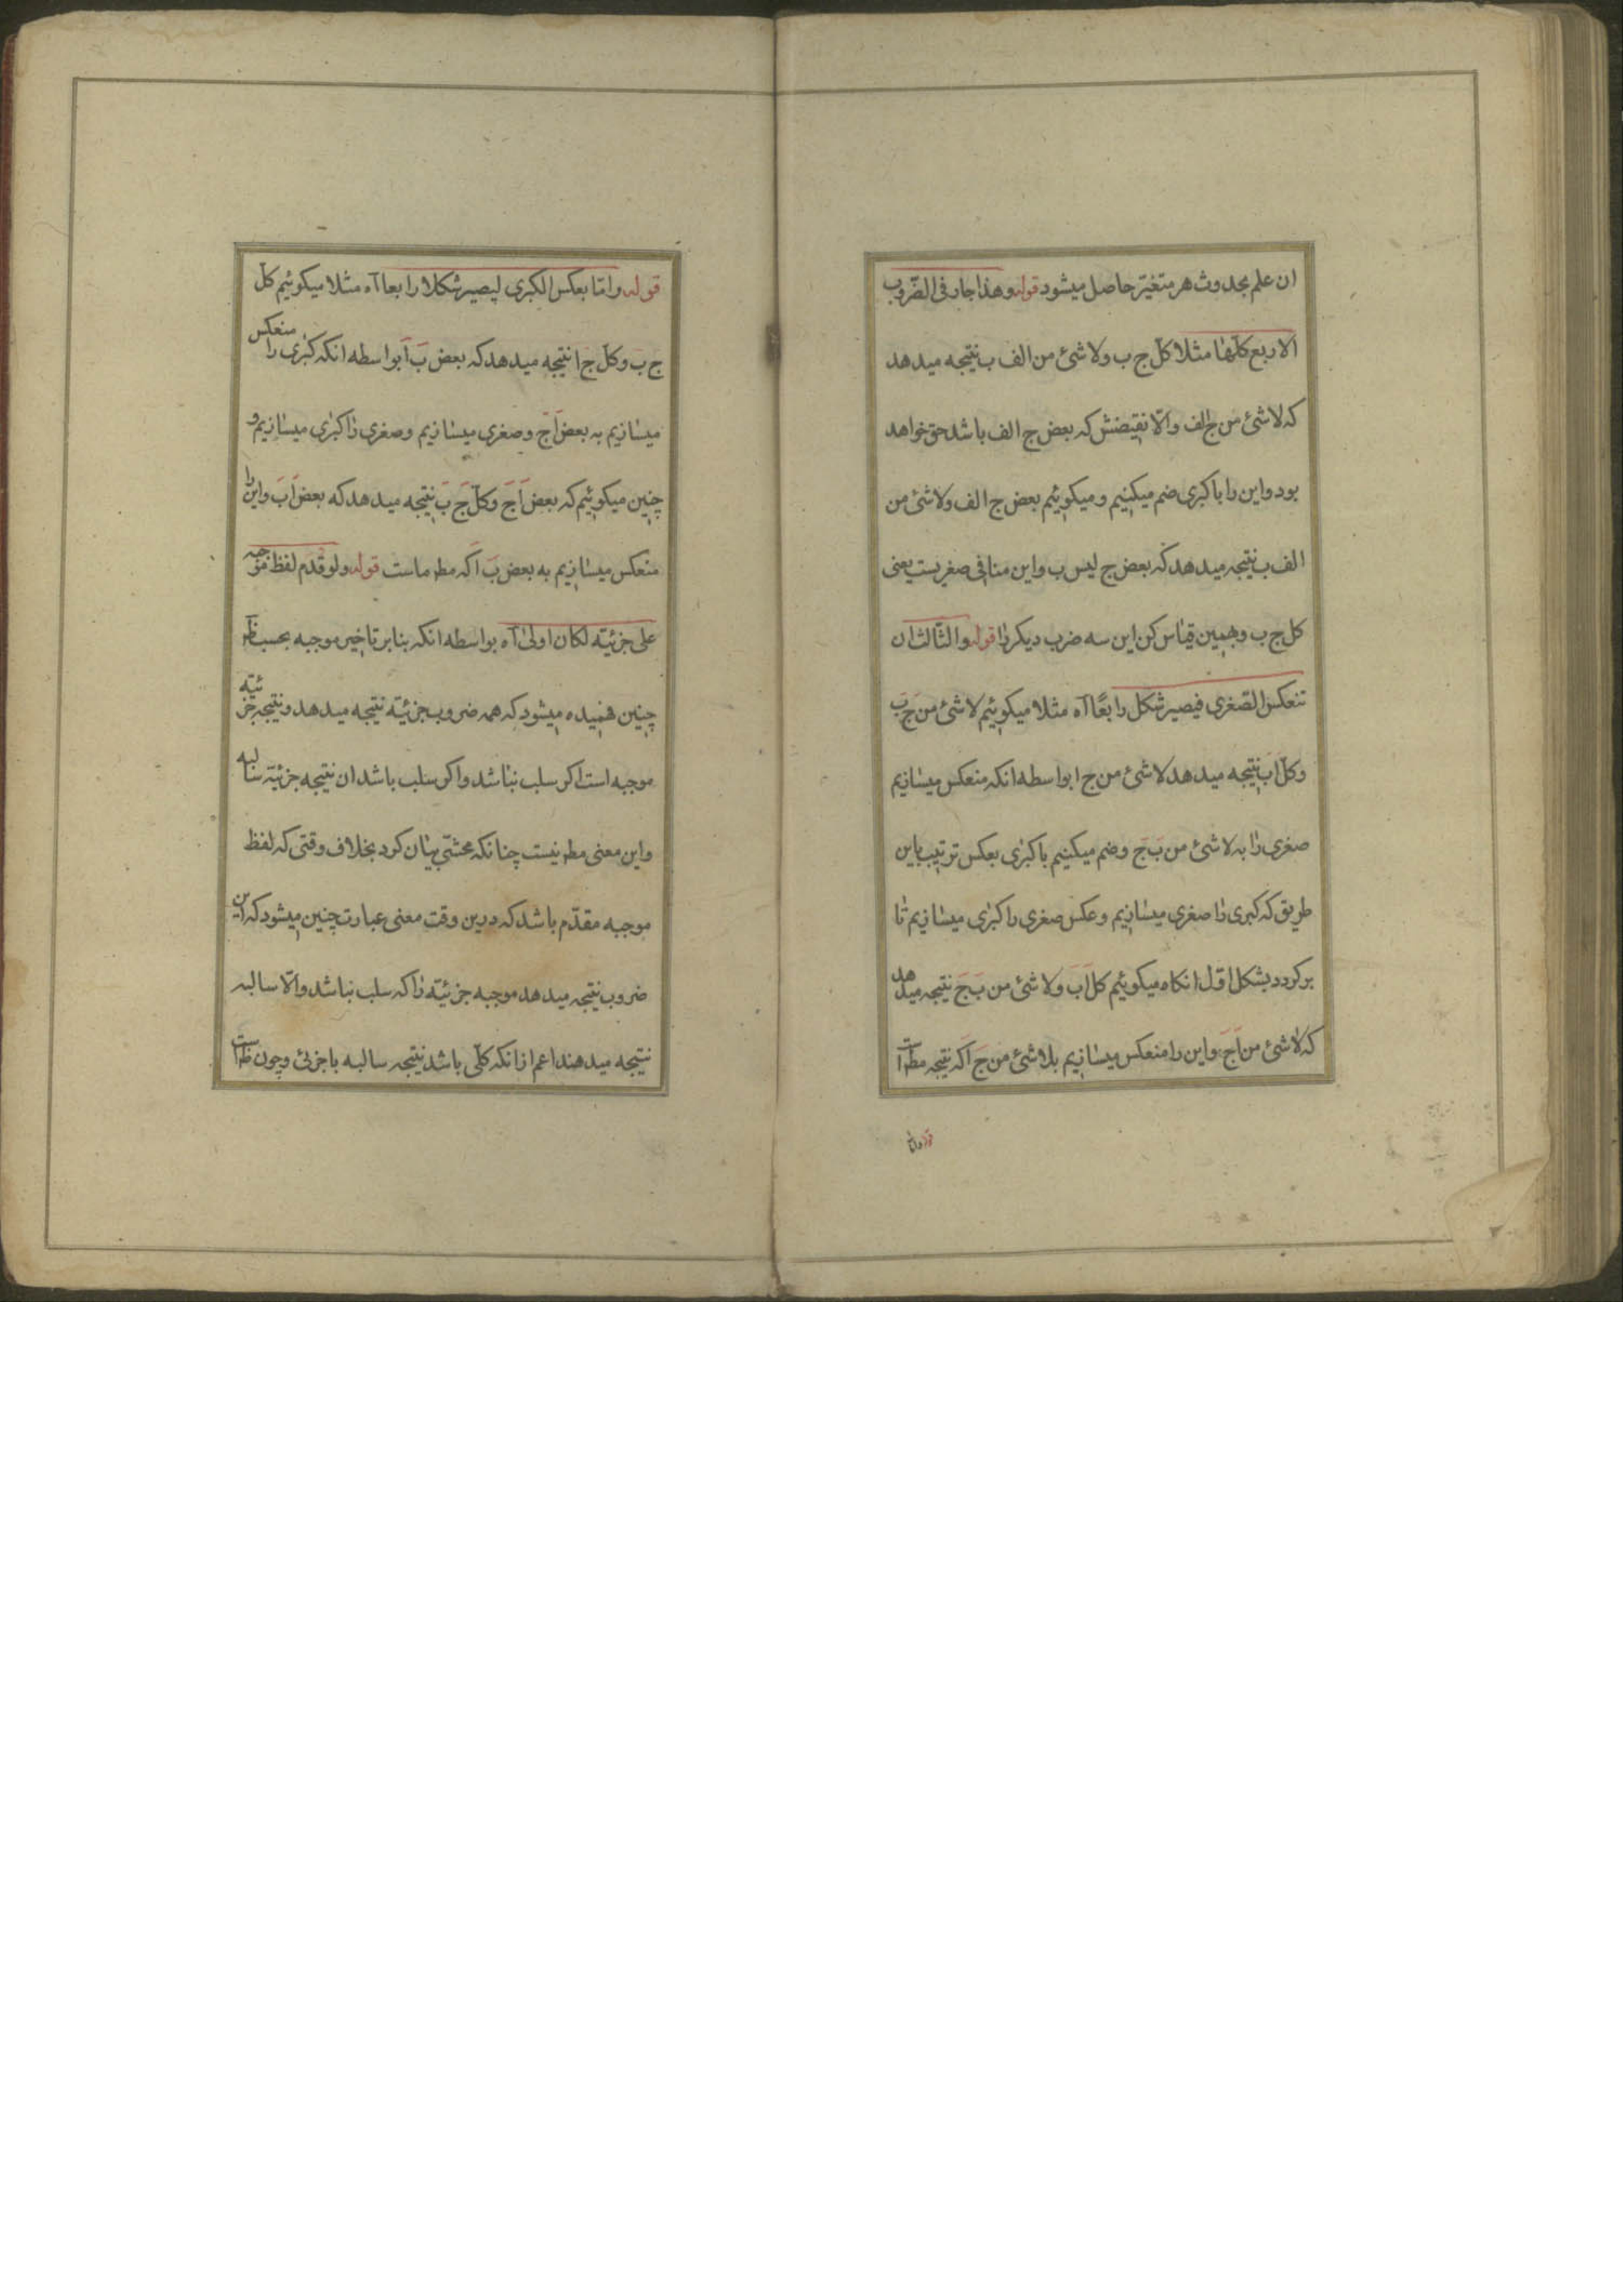 ان علم بحدوث هر متغیر حاصل میشود قوله وهذا جار فی الضروب
الاربع کلها مثلا کل ج ب ولا شئ من الف ب نتیجه میدهد
که لا شئ من ج الف والا نقیضش که بعض ج الف باشد حق خواهد
بود واین را با کبری ضم میکنیم و میکوییم بعض ج الف ولا شئ من
الف ب نتیجه میدهد که بعض ج لیس ب واین منافی صغریست یعنی
کل ج ب وهمین قیاس کن این سه ضرب دیکر را قوله والثالث ان
تنعکس الصغری فیصیر شکل رابعًا آه مثلا میکوییم لا شئ من ج ب
وکل ا ب نتیجه میدهد لا شئ من ج ا بواسطه انکه منعکس میسازیم
صغری را به لا شئ من ب ج وضم میکنیم با کبری بعکس ترتیب باین
طریق که کبری را صغری میسازیم وعکس صغری را کبری میسازیم تا
برکردد بشکل اول انکاه میکوئیم کل ا ب ولا شئ من ب ج نتیجه میدهد
که لا شئ من ا ج واین را منعکس میسازیم بلا شئ من ج ا که نتیجه مط است
قوله واما
قوله واما بعکس الکبری لیصیر شکلا رابعا آه مثلا میکوئیم کل
ج ب وکل ج ا نتیجه میدهد که بعض ب ا بواسطه انکه کبری را منعکس
میسازیم به بعض ا ج وصغری میسازیم وصغری را کبری میسازیم و
چنین میکوییم که بعض ا ج وکل ج ب نتیجه میدهد که بعض ا ب واین را
منعکس میسازیم به بعض ب ا که مط ماست قوله ولو قدم لفظ موجبه
علی جزئیة لکان اولی آه بواسطه انکه بنابر تاخیر موجبه بحسب ظ
چنین فهمیده میشود که همه ضروب جزئیة نتیجه میدهد ونتیجه جزئیه
موجبه است اکر سلب نباشد واکر سلب باشد ان نتیجه جزئیة سالبه
واین معنی مط نیست چنانکه محشی بیان کرد بخلاف وقتی که لفظ
موجبه مقدم باشد که درین وقت معنی عبارت چنین میشود که این
ضروب نتیجه میدهد موجبه جزئیة را که سلب نباشد والا سالبه
نتیجه میدهند اعم ازانکه کلی باشد نتیجه سالبه یا جزئی وچون ظ است